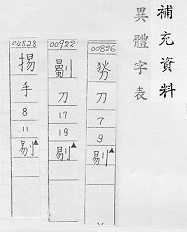 補充資料
異體字表
00826
刀
7
9
剔▲
00922
刀
17
19
剔▲
04828
手
8
11
剔▲